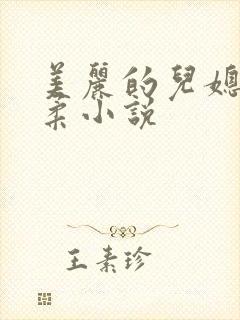 美麗的兒媳
柔小說
王素珍